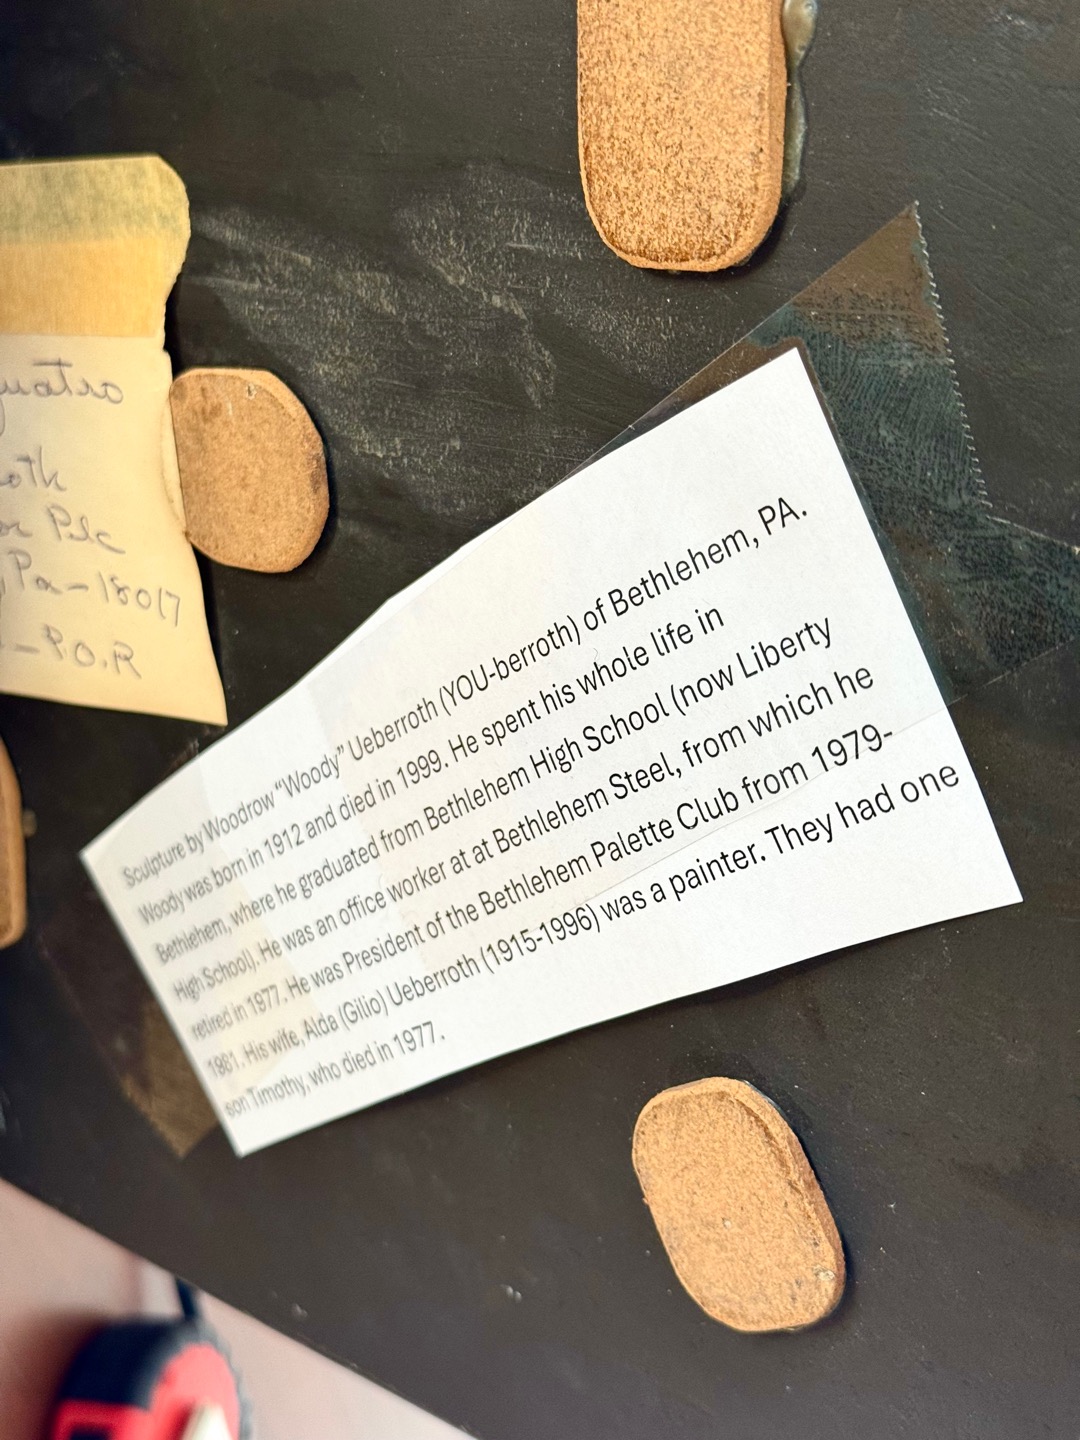 uatro
oth
Plc
Pa-18017
-P.O.R
Sculpture by Woodrow "Woody" Ueberroth (YOU-berroth) of Bethlehem, PA.
Woody was born in 1912 and died in 1999. He spent his whole life in
Bethlehem, where he graduated from Bethlehem High School (now Liberty
High School). He was an office worker at at Bethlehem Steel, from which he
retired in 1977. He was President of the Bethlehem Palette Club from 1979-
1981. His wife, Alda (Gilio) Ueberroth (1915-1996) was a painter. They had one
son Timothy, who died in 1977.